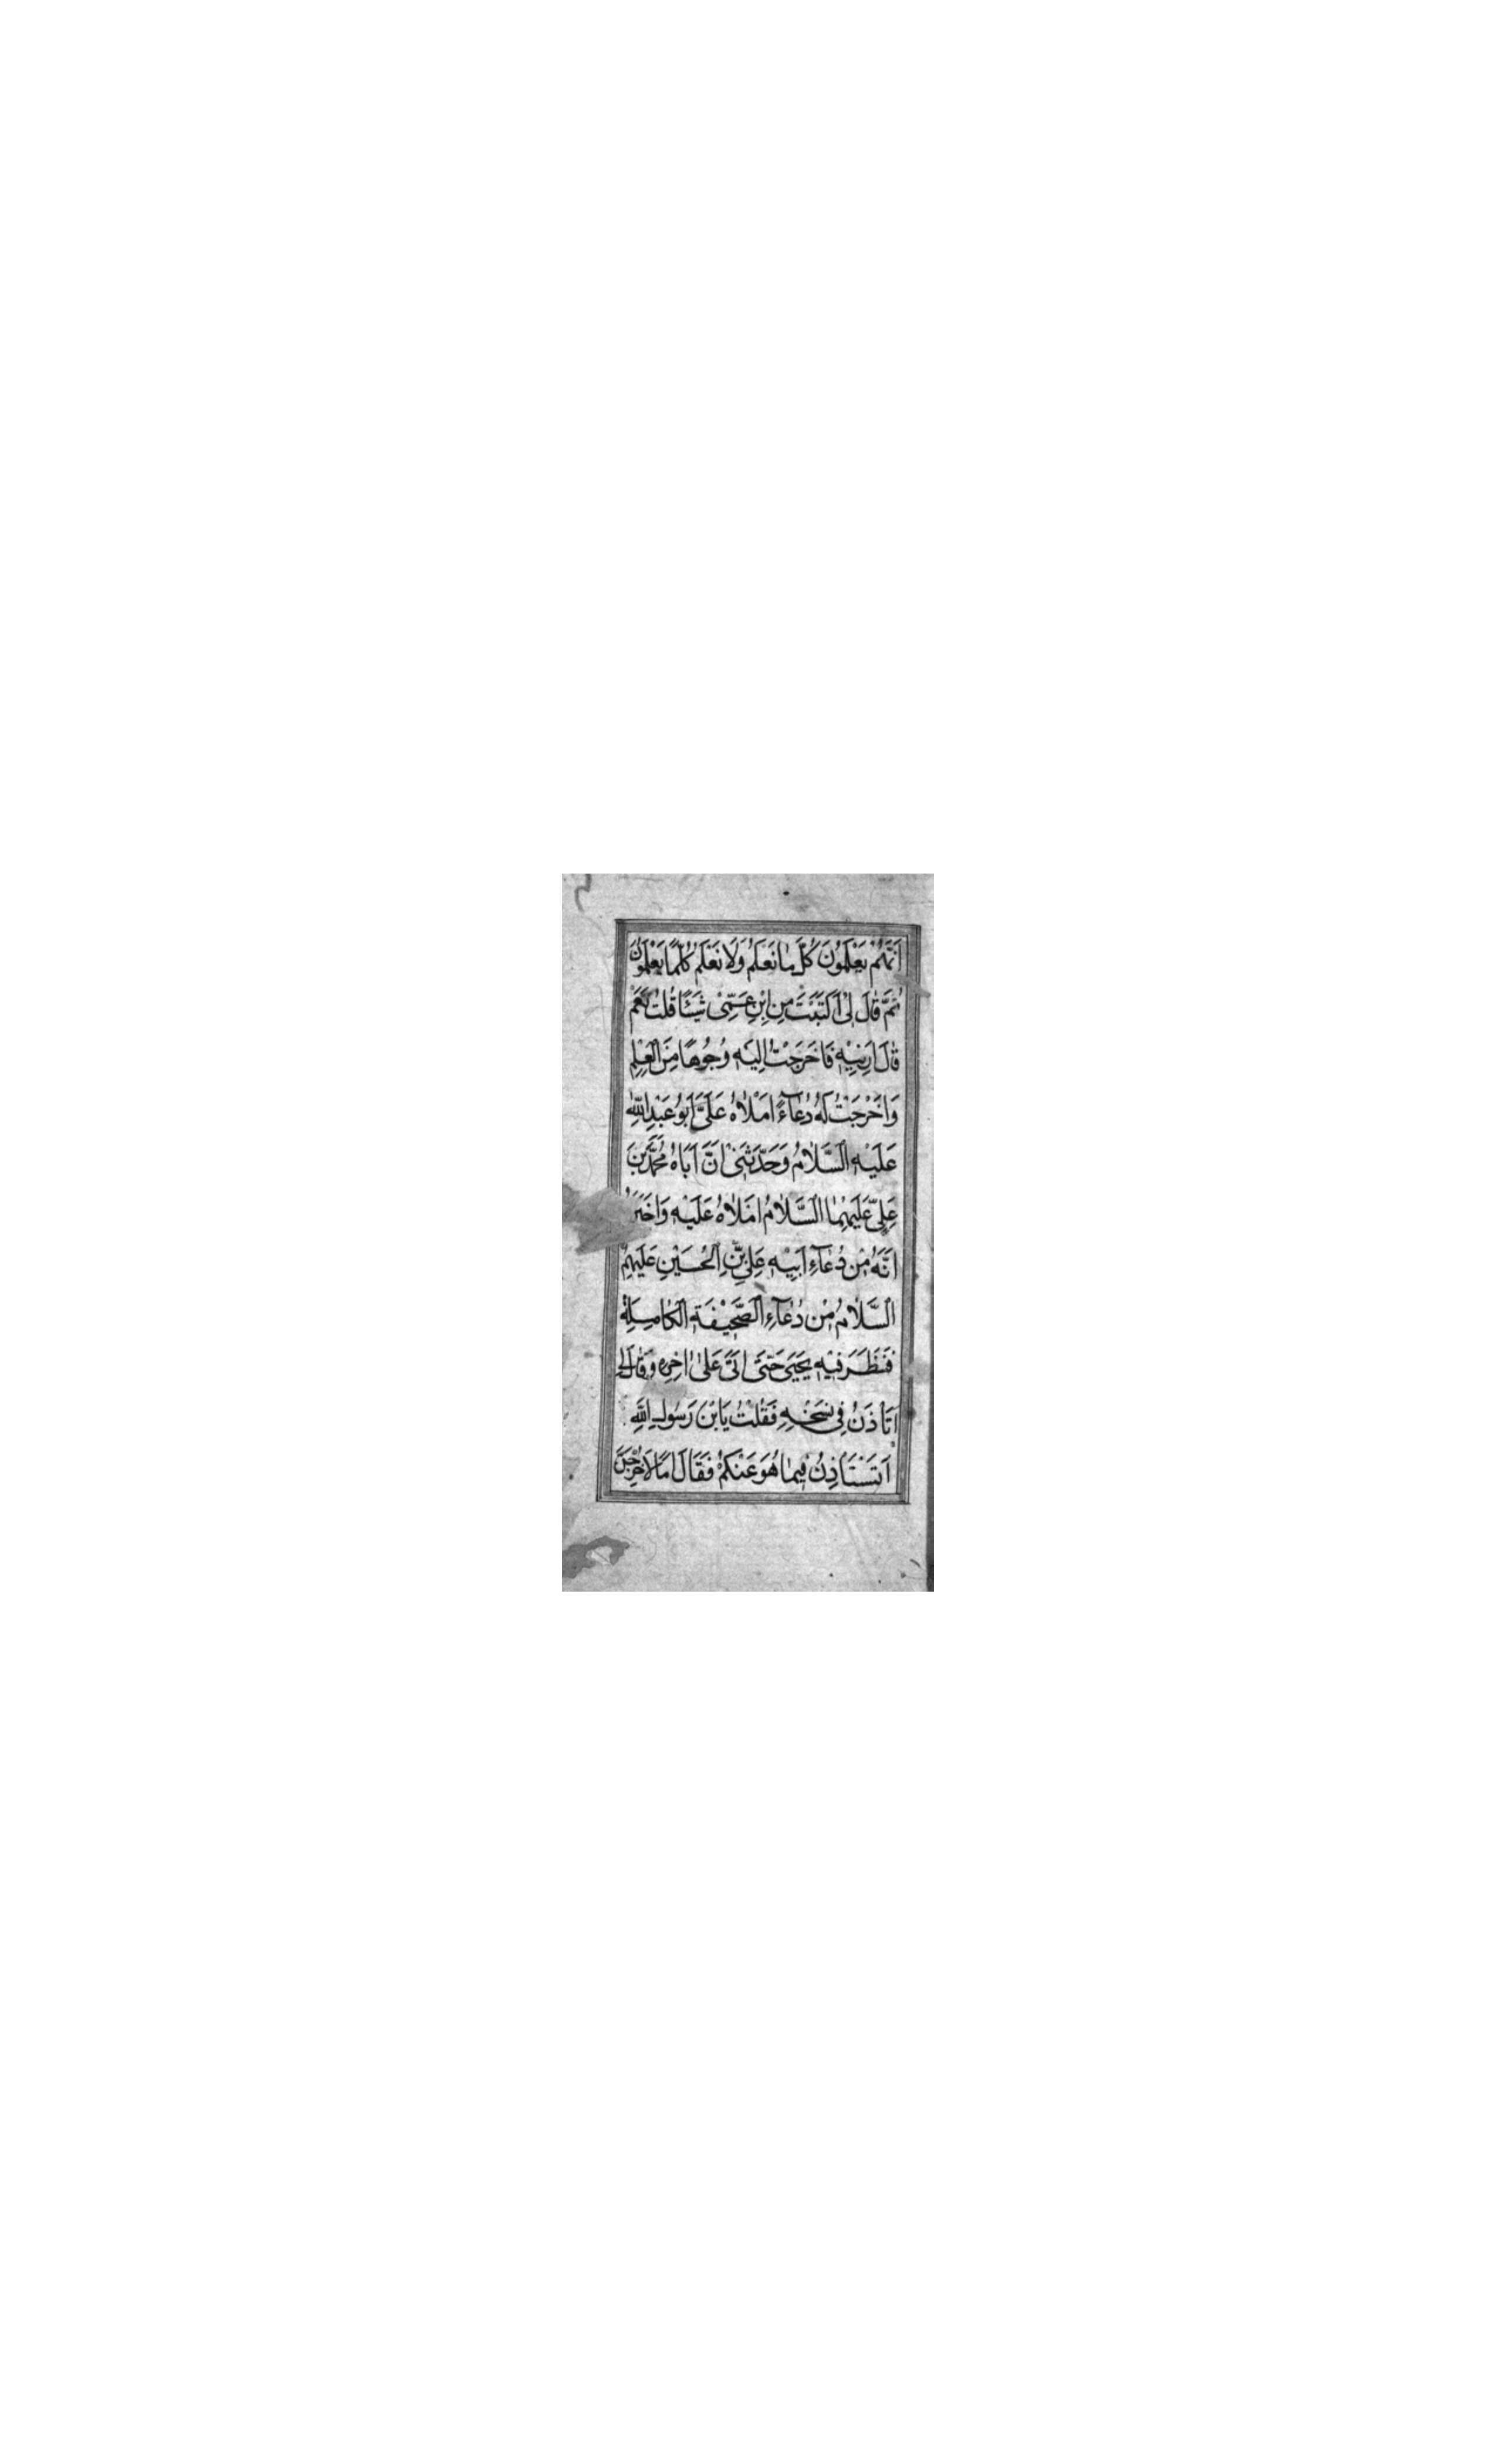 اَنَّهُمْ يَعْلَمُوْنَ كُلَّ مٰا نَعْلَمُ وَلَا نَعْلَمُ كُلَّمَا يَعْلَمُوْنَ
ثُمَّ قٰالَ لِىْ اَكَتَبْتَ مِنِ ابْنِ عَمِّىْ شَيْئًا قُلْتُ نَعَمْ
قٰالَ اَرِنِيْهِ فَاَخْرَجْتُ اِلَيْهِ وُجُوْهًا مِنَ الْعِلْمِ
وَاَخْرَجْتُ لَهُ دُعٰآءً اَمْلٰاهُ عَلَىَّ اَبُوْ عَبْدِ اللّٰهِ
عَلَيْهِ السَّلٰامُ وَحَدَّثَنِىْ اَنَّ اَبَاهُ مُحَمَّدَ بْنَ
عَلِىٍّ عَلَيْهِمَا السَّلٰامُ اَمْلٰاهُ عَلَيْهِ وَاَخْبَرَهُ
اَنَّهُ مِنْ دُعٰآءِ اَبِيْهِ عَلِىِّ بْنِ الْحُسَيْنِ عَلَيْهِمُ
السَّلٰامُ مِنْ دُعٰآءِ الصَّحِيْفَةِ الْكٰامِلَةِ
فَنَظَرَ فِيْهِ يَحْيَى حَتّىٰ اَتىٰ عَلىٰ اٰخِرِهِ وَقٰالَ لِى
اَتَاْذَنُ فِى نَسْخِهِ فَقُلْتُ يَابْنَ رَسُولِ اللّٰهِ
اَتَسْتَاْذِنُ فِيمٰا هُوَ عَنْكُمْ فَقَالَ اَمَا لَاُخْرِجَنَّ